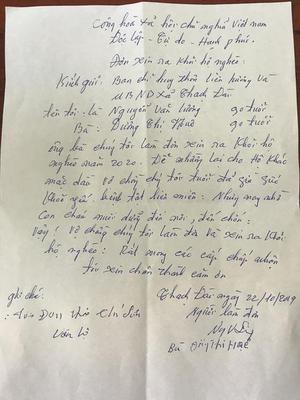 Cộng hoà xã hội chủ nghĩa Việt nam
Độc lập - Tự do - Hạnh phúc.
Đơn xin ra khỏi hộ nghèo.
Kính gửi: Ban chỉ huy thôn liên hương và
UBND xã Thạch Đài
tên tôi là Nguyễn Văn 90 tuổi
Bà: Dương Thị 90 tuổi
chúng tôi làm đơn xin ra khỏi hộ
nghèo năm 2020. Để nhường lại cho hộ khác
mặc dầu vợ chồng tôi tuổi đã già sức
khỏe yếu bệnh tật liên miên: Nhưng may nhờ
con cháu nuôi dưỡng
Vậy! vợ chồng chúng tôi làm đơn xin ra khỏi
hộ nghèo: Rất mong các cấp chấp nhận
tôi xin chân thành cảm ơn
ghi chú: Thạch Đài ngày 22/10/2019
Người làm đơn
Bà